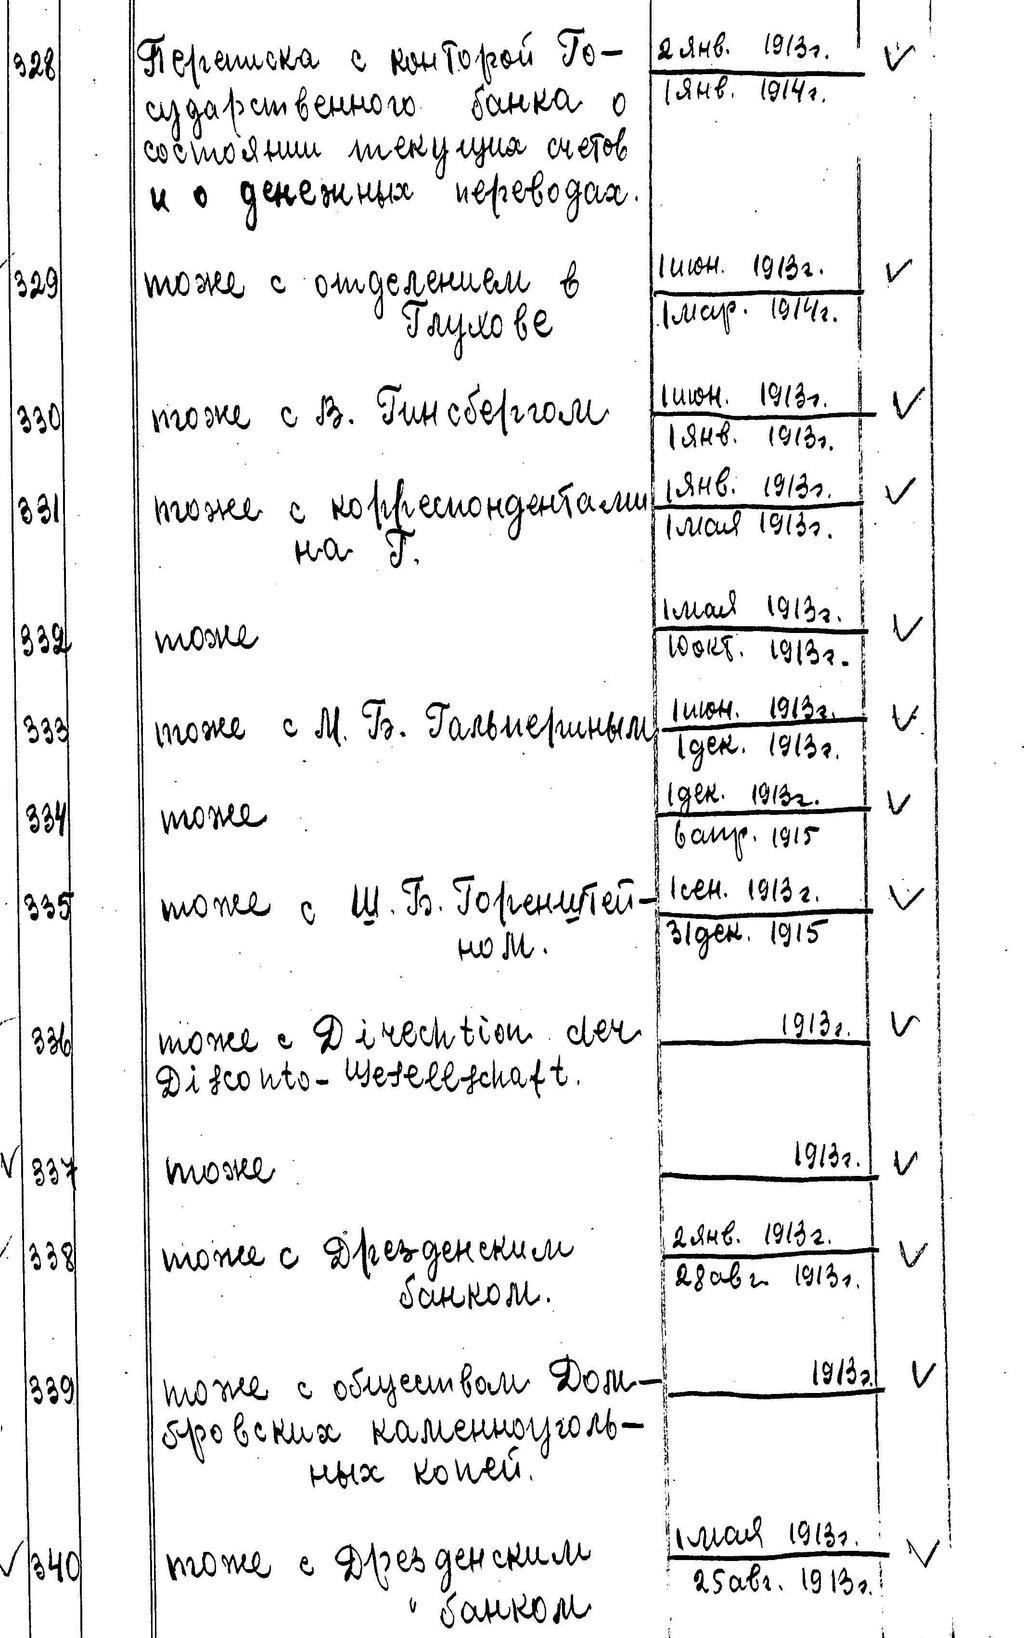 328 Переписка с конторой Го- 2 янв. 1913г.
сударственного банка о 1 янв. 1914г.
состоянии текущих счетов
и о денежных переводах.
329 тоже с отделением в 1 июн. 1913г.
Глухове 1 мар. 1914г.
330 тоже с В. Гинсбергом 1 июн. 1913г.
1 янв. 1913г.
331 тоже с корреспондентами 1 янв. 1913г.
на Г. 1 мая 1913г.
332 тоже 1 мая 1913г.
10 окт. 1913г.
333 тоже с М. Б. Гальпериным 1 июн. 1913г.
1 дек. 1913г.
334 тоже 1 дек. 1913г.
6 апр. 1915
335 тоже с Ш. Б. Горенштей- 1 сен. 1913г.
ном. 31 дек. 1915
336 тоже с Direchtion der 1913г.
Disconto-Gesellschaft.
337 тоже 1913г.
338 тоже с Дрезденским 2 янв. 1913г.
банком. 28 авг 1913г.
339 тоже с обществом Дом- 1913г.
бровских каменноуголь-
ных копей.
340 тоже с Дрезденским 1 мая 1913г.
банком 25 авг. 1913г.